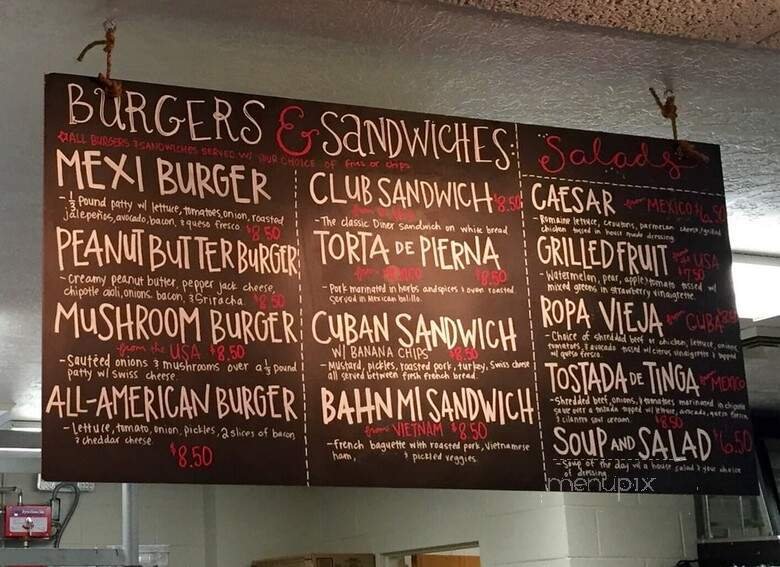 BURGERS & SANDWICHES
☆ALL BURGERS & SANDWICHES SERVED W/ YOUR CHOICE OF fries or chips
MEXI BURGER
- 1/3 Pound patty w/ lettuce, tomatoes, onion, roasted
jalepeños, avocado, bacon, & queso fresco $8.50
PEANUT BUTTER BURGER
- creamy peanut butter, pepper jack cheese,
chipotle aoli, onions, bacon, & Sriracha. $8.50
MUSHROOM BURGER
from the USA $8.50
- Sautéed onions & mushrooms over a 1/3 pound
patty w/ Swiss cheese.
ALL-AMERICAN BURGER
- Lettuce, tomato, onion, pickles, 2 slices of bacon
& cheddar cheese.
$8.50
CLUB SANDWICH $8.50
- The classic Diner Sandwich on white bread
TORTA DE PIERNA
from MEXICO $8.50
- Pork marinated in herbs and spices & oven roasted
Served in Mexican bolillo.
CUBAN SANDWICH
W/ BANANA CHIPS $8.50
- Mustard, pickles, roasted pork, turkey, Swiss cheese
all served between fresh french bread.
BAHN MI SANDWICH
from VIETNAM $8.50
- French baguette with roasted pork, Vietnamese
ham, & pickled veggies.
Salads
CAESAR from MEXICO $6.50
- Romaine lettuce, croutons, parmesan cheese/grilled
chicken tossed in house made dressing.
GRILLED FRUIT from USA
$7.50
- Watermelon, pear, apple, tomato tossed w/
mixed greens in strawberry vinaigrette.
ROPA VIEJA from CUBA
- Choice of shredded beef or chicken, lettuce, onions
tomatoes, & avocado tossed w/ citrus vinaigrette & topped
w/ queso fresco.
TOSTADA DE TINGA from MEXICO
- Shredded beef, onions, & tomatoes marinated in chipotle
sauce over a tostada topped w/ lettuce, avocado, queso fresco
& cilantro sour cream. $8.50
SOUP AND SALAD $6.50
- Soup of the day w/ a house salad & your choice
of dressing.
menupix